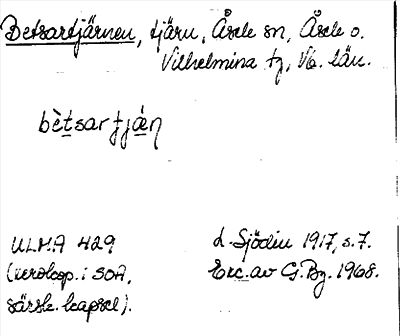 Betsartjärnen, tjärn, Åsele sn, Åsele o.
Vilhelmina tg, Vb. län.
bètsartjä́ṇ
ULMA 429
(xerokop. i SOA,
särsk. kapsel).
L. Sjödin 1917, s. 7.
Exc. av G. Bg. 1968.